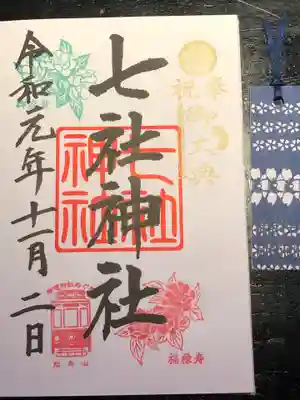 奉祝
御大典
七社神社
七社
神社
令和元年十一月二日
飛鳥山
福禄寿